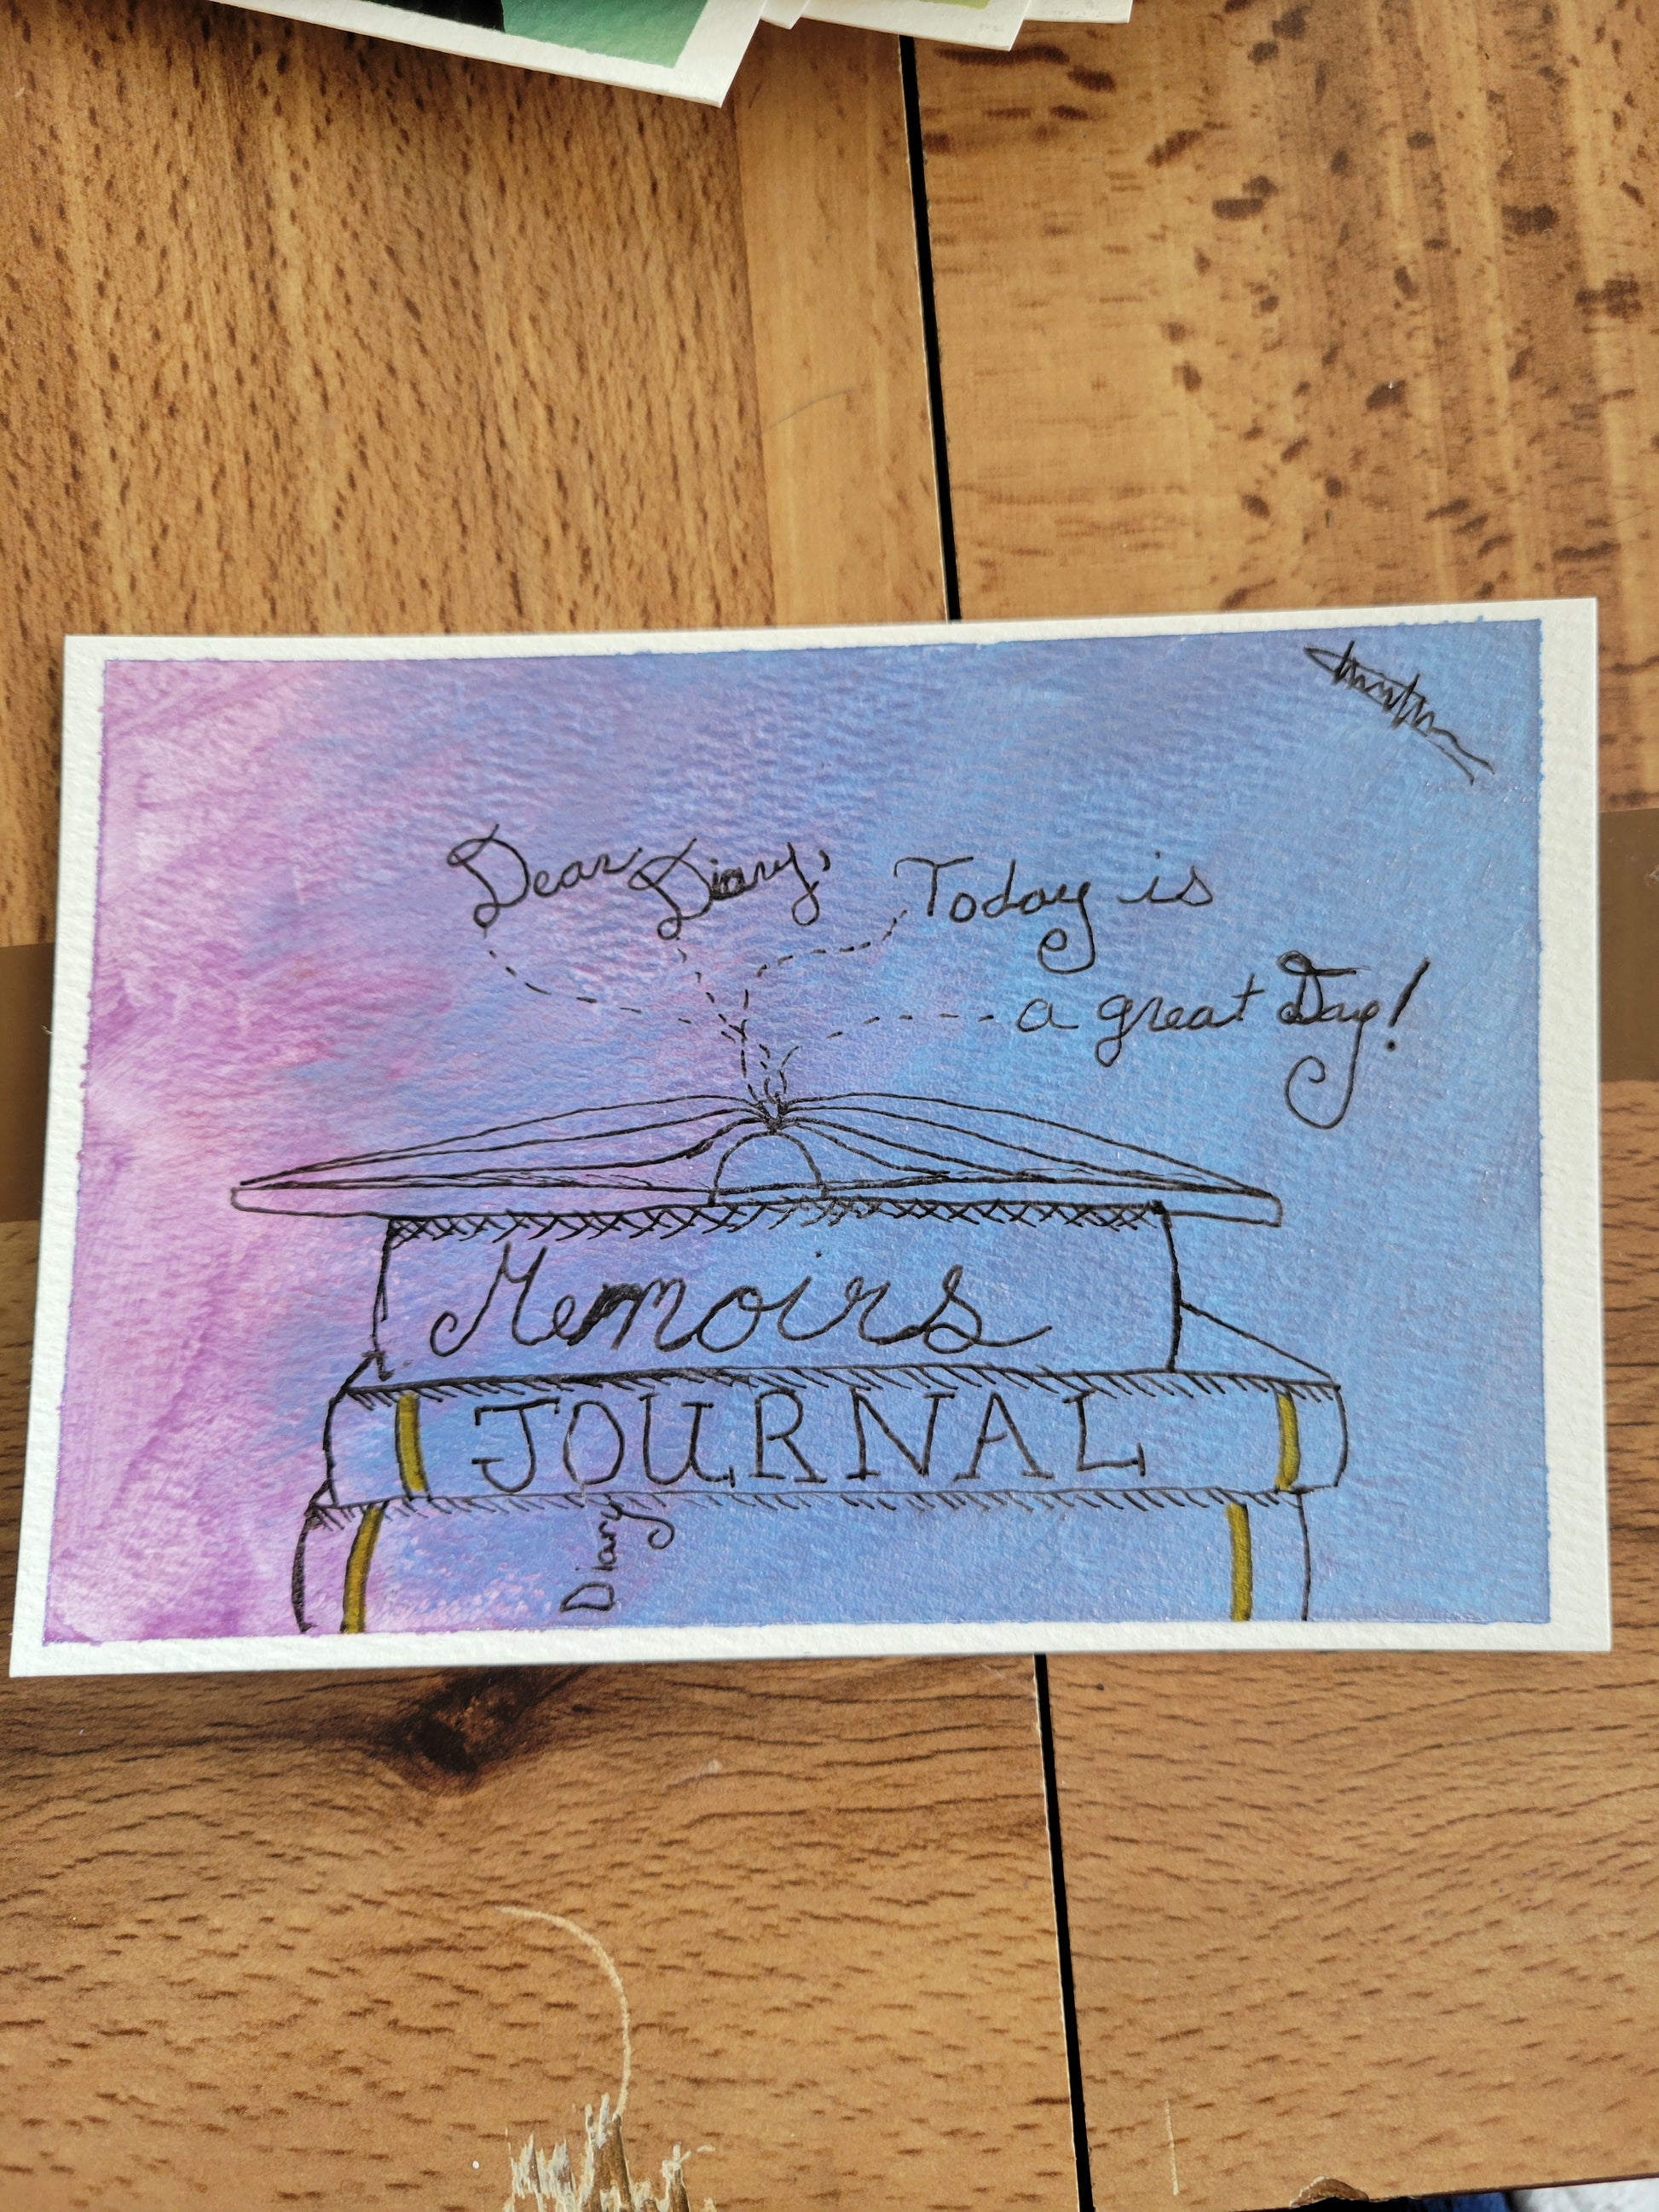 Dear Diary, Today is
a great Day!
Memoirs
JOURNAL
Diary